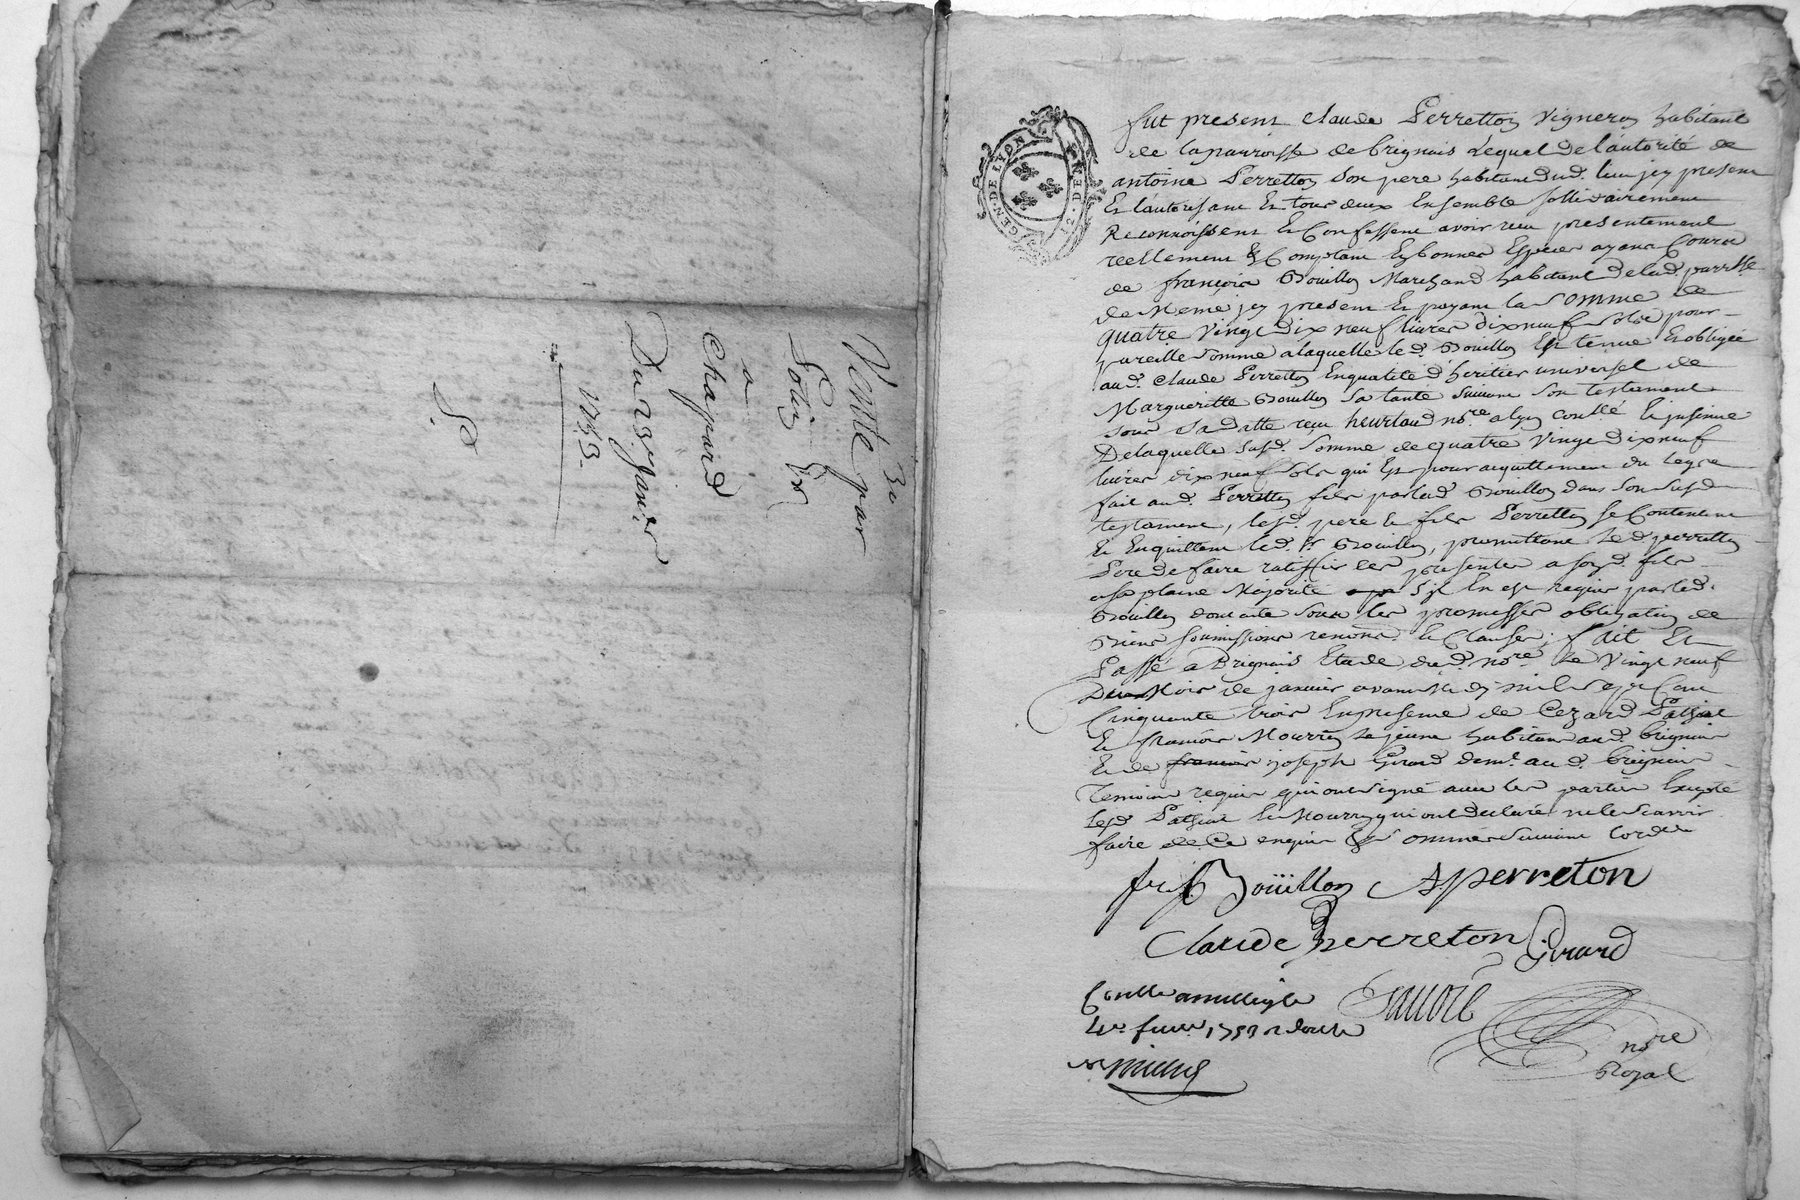 30
Vente par
a
Chapard
Du 25 Janv.r
1753
GEN. DE LYON
DE
fut present Claude Perretton Vigneron habitant
de la parroisse de brignais Lequel de l'autorité de
antoine Perretton son pere habitant dud. lieu jcy present
Et l'autorisant Et tous deux Ensemble sollidairement
Reconnoissent Et Confessent avoir reçu presentement
reellement & Comptant En bonnes Especes ayant Cours
de françois Boüillon Marchand habitant de lad. parroisse
de Meme jcy present Et payant la somme de
quatre vingt dix neuf livres dix neuf sols pour
pareille somme a laquelle le d. Boüillon Est tenue Et obligée
aud. Claude Perretton En qualité d'heritier universel de
Margueritte Boüillon sa tante suivant son testament
sous sa datte reçu heurtaud no.re a lyon conllé Et jnsinué
De laquelle susd. somme de quatre vingt dix neuf
livres dix neuf sols qui Est pour acquittement du legs
fait aud. Perretton fils par lad. Boüillon dans son susd.
testament, lesd. pere Et fils Perretton se Contentent
Et En quittent led. Sr. Boüillon, promettant le d. perretton
Pere de faire ratiffier les presentes a sond. fils
a sa plaine Majorité s'il En est requis par led.
Boüillon dont acte sous les promesses obligation de
Biens soumissions renons. Et Clauses; fait Et
Passé a Brignais Etude dud. no.re le vingt neuf
Du Mois de janvier avant Midy mil sept Cent
Cinquante trois En presence de Cezard
Et francois Mourron le jeune habitans aud. brignais
Et de francois joseph Girard dem.t au d. brignais
Temoins requis qui ont signé avec les parties Excepté
lesd. Et Mourron qui ont declaré ne le scavoir
faire de Ce enquis & sommés suivant l'ordce
fr. Boüillon A perreton
Claude perreton Girard
Conllé
4e fevrier 1753
no.re
Royal